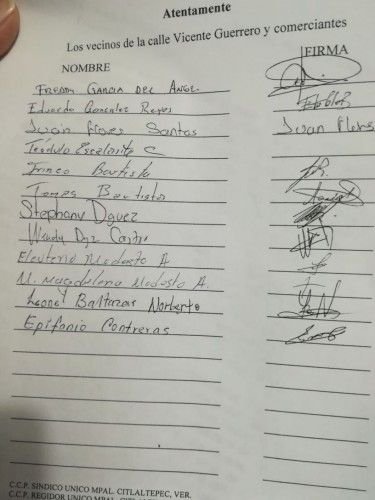 Atentamente
Los vecinos de la calle Vicente Guerrero y comerciantes
NOMBRE FIRMA
Freddy Garcia Del Angel.
Eduardo Gonzalez Reyes
Juan flores Santos Juan flores
Teódulo Escelante C
Irineo Bautista
Tomas Bautista
Stephany Dguez
Wendy Dgz Castro
Eleuterio Modesto A
M. Magdalena Modesto A.
Leonel Baltazar Norberto
Epifanio Contreras
C.C.P. SINDICO UNICO MPAL. CITLALTEPEC, VER.
C.C.P. REGIDOR UNICO MPAL.